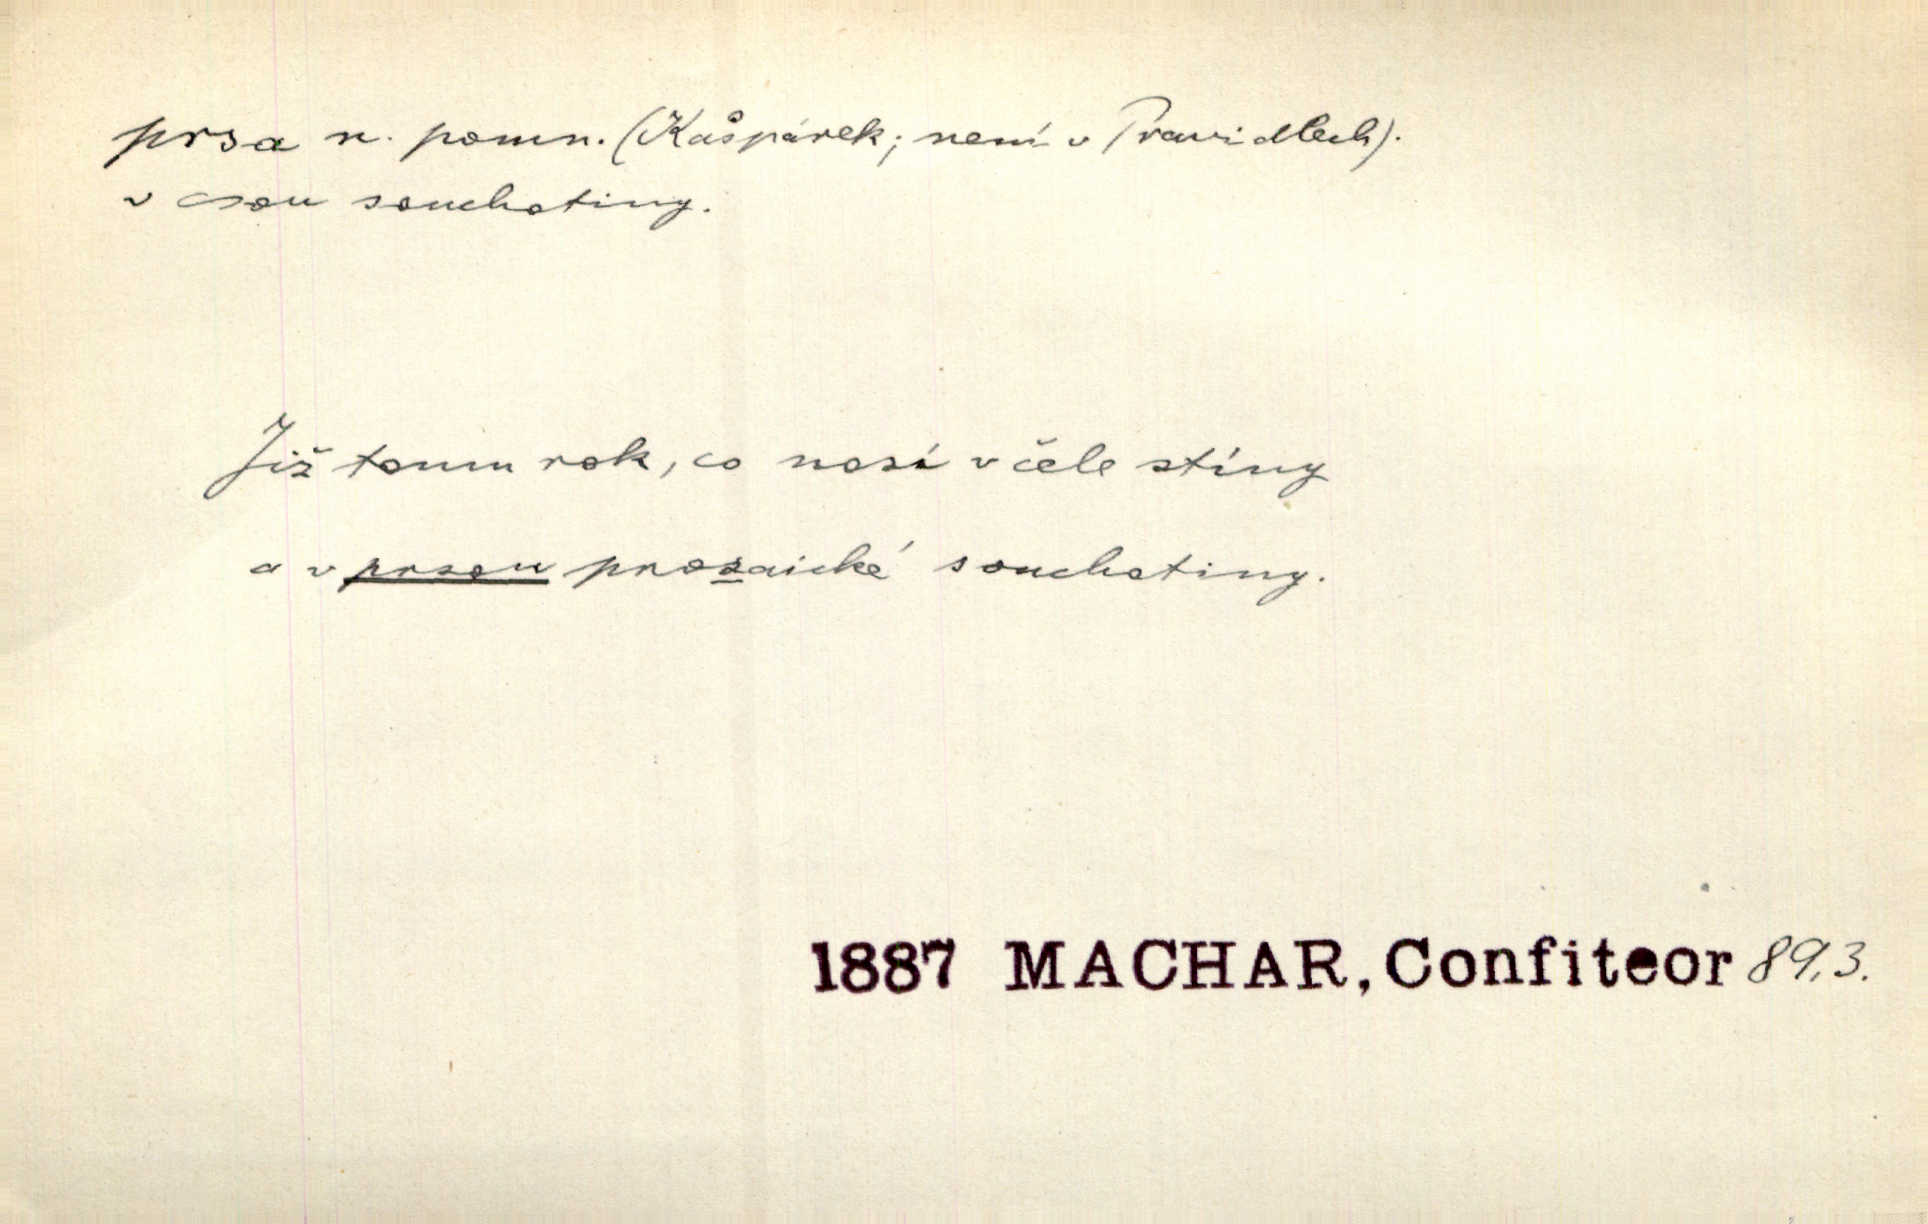 prsa n. pomn. (Kašpárek; není v Pravidlech).
v ~sou souchotiny.
Již tomu rok, co nosí v čele stíny
a v prsou prosaické souchotiny.
1887 MACHAR, Confiteor 89,3.